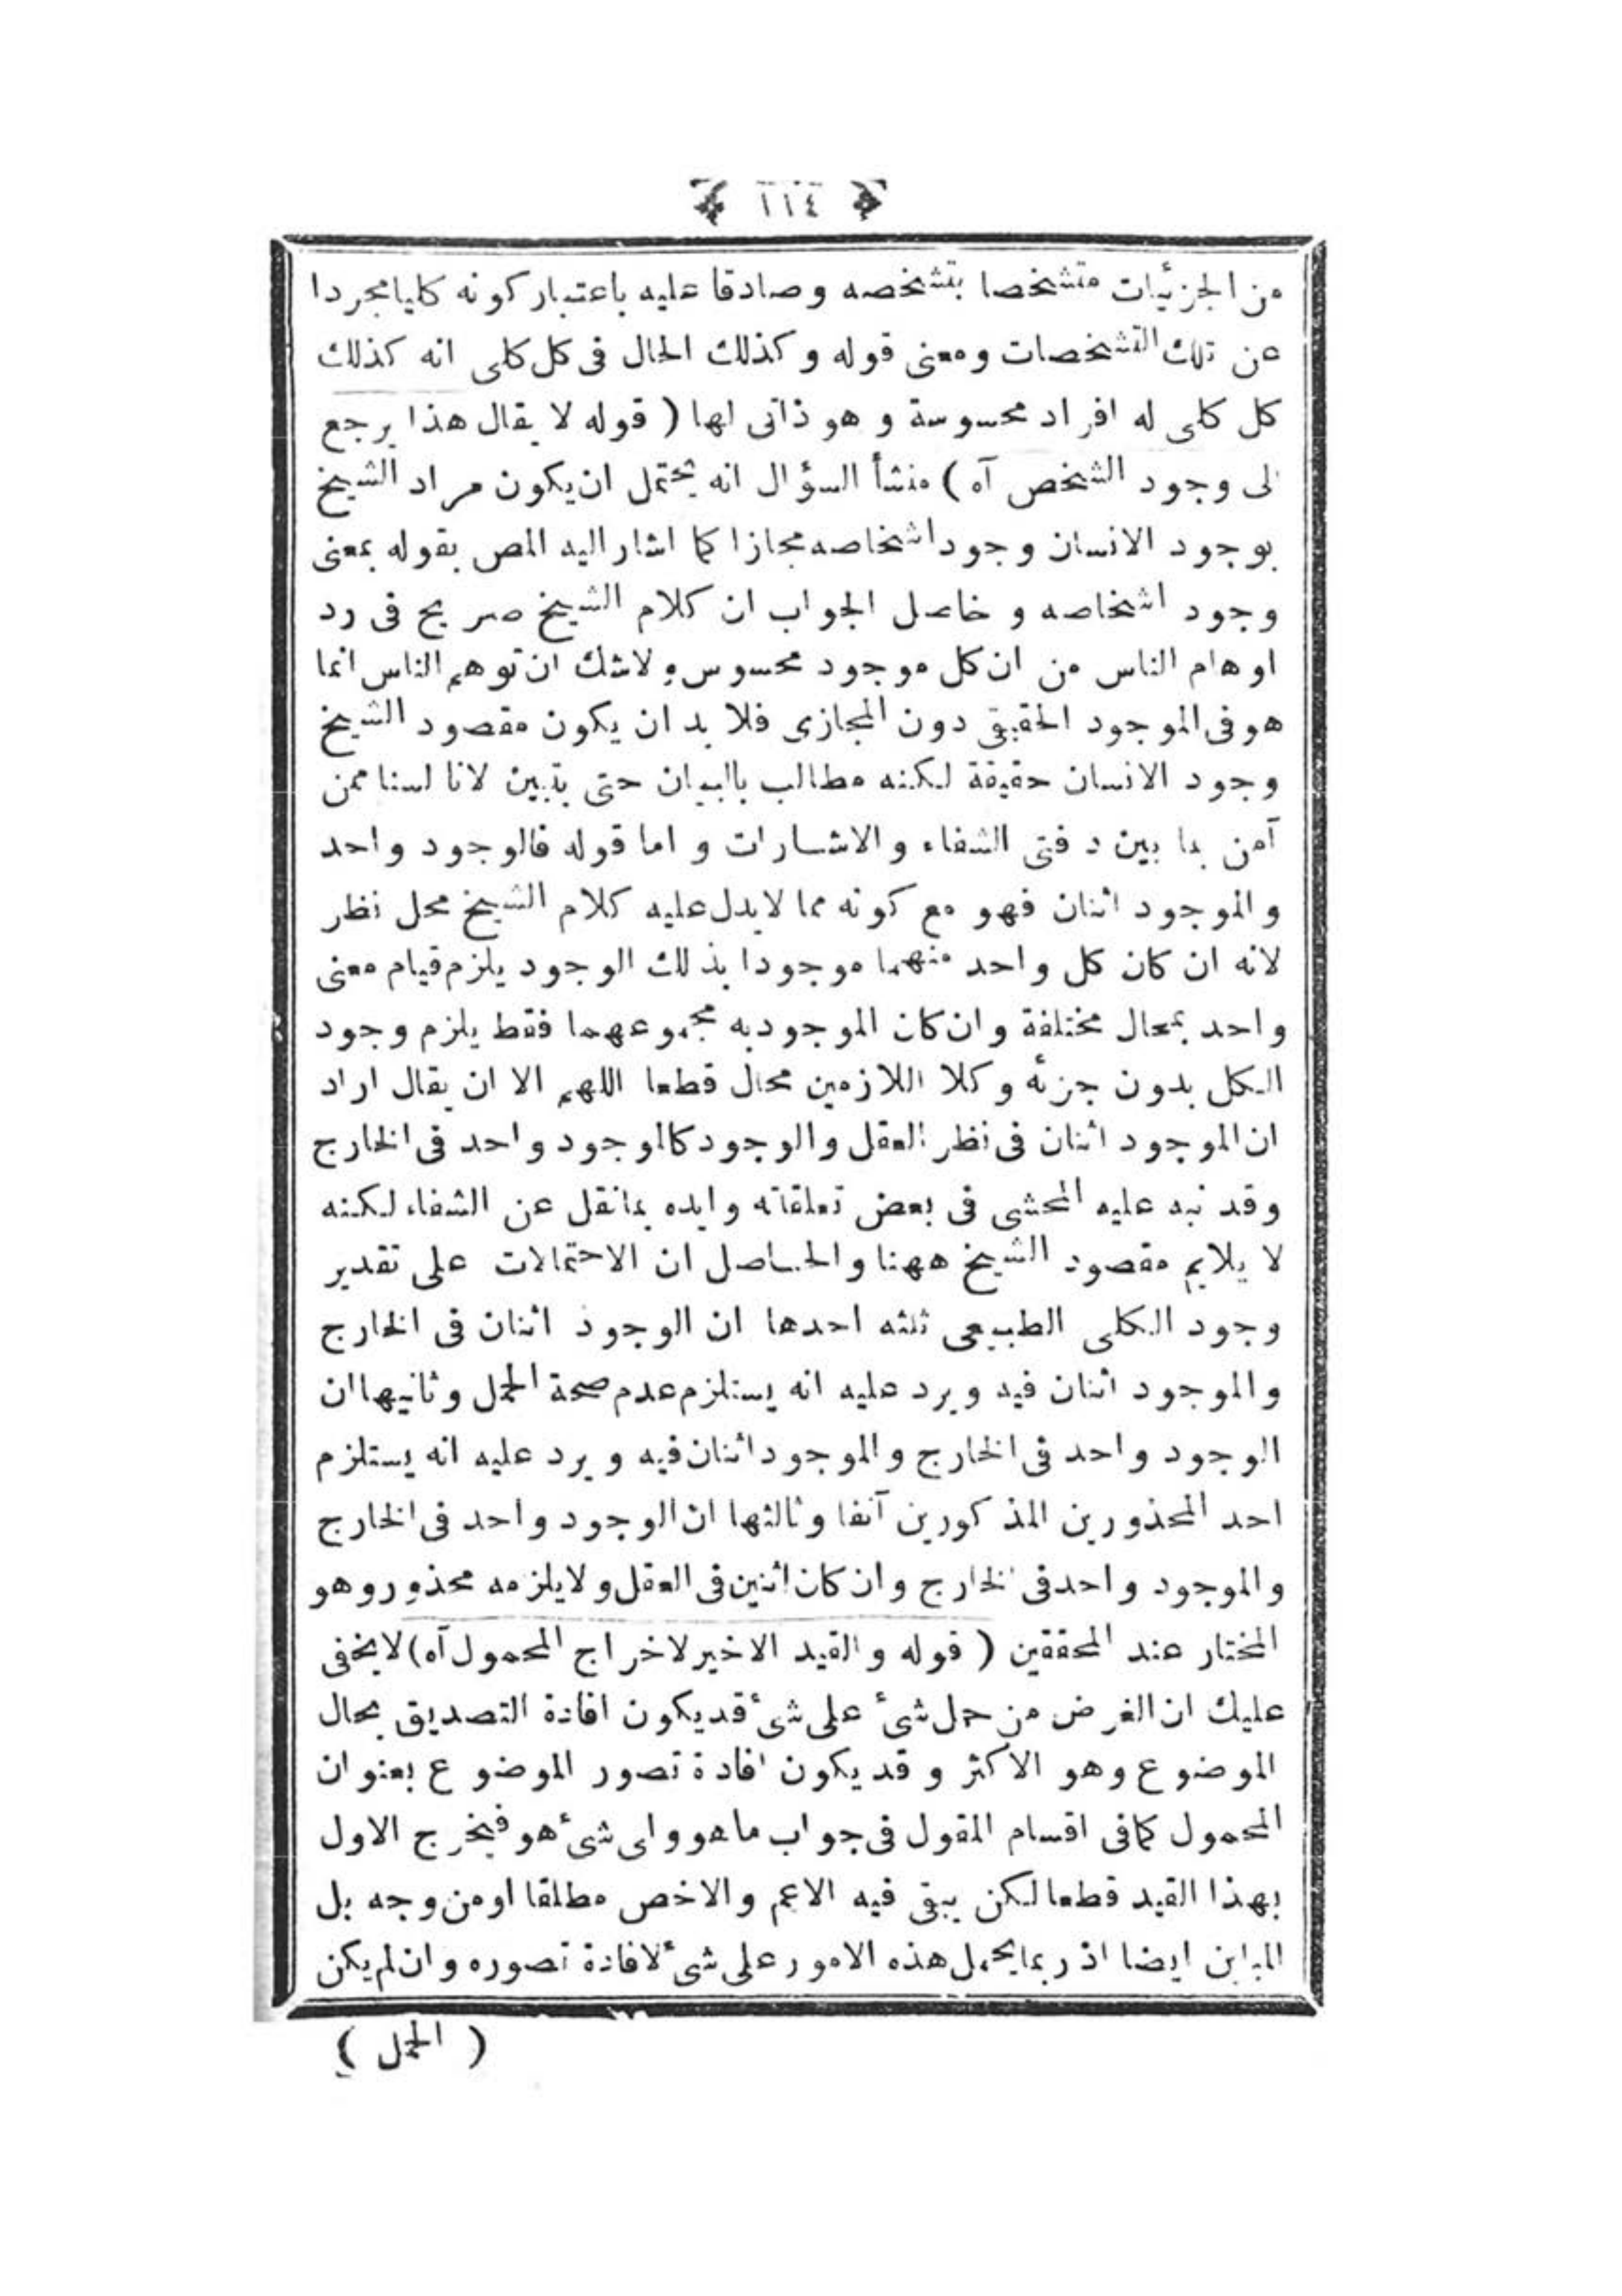 ١١٤
من الجزئيات متشخصا بتشخصه وصادقا عليه باعتبار كونه كليا مجردا
عن تلك التشخصات ومعنى قوله وكذلك الحال فى كل كلى انه كذلك
كل كلى له افراد محسوسة و هو ذاتى لها ( قوله لا يقال هذا يرجع
الى وجود الشخص آه ) منشأ السؤال انه يحتمل ان يكون مراد الشيخ
بوجود الانسان وجود اشخاصه مجازا كما اشار اليه المص بقوله بمعنى
وجود اشخاصه و خاصل الجواب ان كلام الشيخ صريح فى رد
اوهام الناس من ان كل موجود محسوس ولاشك ان توهم الناس انما
هو فى الموجود الحقيقى دون المجازى فلا بد ان يكون مقصود الشيخ
وجود الانسان حقيقة لكنه مطالب بالبيان حتى يتبين لانا لسنا ممن
آمن بما بين دفتى الشفاء والاشارات و اما قوله فالوجود واحد
والموجود اثنان فهو مع كونه مما لا يدل عليه كلام الشيخ محل نظر
لانه ان كان كل واحد منهما موجودا بذلك الوجود يلزم قيام معنى
واحد بمحال مختلفة وان كان الموجود به مجموعهما فقط يلزم وجود
الكل بدون جزئه وكلا اللازمين محال قطعا اللهم الا ان يقال اراد
ان الموجود اثنان فى نظر العقل والوجود كالموجود واحد فى الخارج
وقد نبه عليه المحشى فى بعض تعلقاته وايده بما نقل عن الشفاء لكنه
لا يلايم مقصود الشيخ ههنا والحاصل ان الاحتمالات على تقدير
وجود الكلى الطبيعى ثلثه احدها ان الوجود اثنان فى الخارج
والموجود اثنان فيه ويرد عليه انه يستلزم عدم صحة الحمل وثانيها ان
الوجود واحد فى الخارج والموجود اثنان فيه و يرد عليه انه يستلزم
احد المحذورين المذكورين آنفا وثالثها ان الوجود واحد فى الخارج
والموجود واحد فى الخارج وان كان اثنين فى العقل ولا يلزمه محذور وهو
المختار عند المحققين ( قوله والقيد الاخير لاخراج المحمول آه) لا يخفى
عليك ان الغرض من حمل شئ على شئ قد يكون افادة التصديق بحال
الموضوع وهو الاكثر و قد يكون افادة تصور الموضوع بعنوان
المحمول كما فى اقسام المقول فى جواب ما هو واى شئ هو فيخرج الاول
بهذا القيد قطعا لكن يبقى فيه الاعم والاخص مطلقا او من وجه بل
المباين ايضا اذ ربما يحمل هذه الامور على شئ لافادة تصوره وان لم يكن
( الحمل )